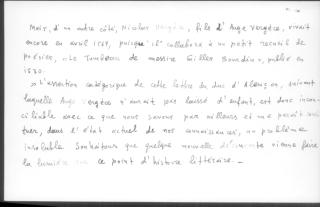 Mais, d'un autre côté, Nicolas Vergèce, fils d'Ange Vergèce, vivait
encore en avril 1569, puisqu'il collabora à un petit recueil de
poésies, « Le Tombeau de messire Gilles Bourdin », publié en
1570.
» L'assertion catégorique de cette lettre du duc d'Alençon, suivant
laquelle Ange Vergèce n'aurait pas laissé d'enfant, est donc incon-
ciliable avec ce que nous savons par ailleurs et me paraît
tuer, dans l'état actuel de nos connaissances, un problème
insoluble. Souhaitons que quelque nouvelle découverte vienne faire
la lumière sur ce point d'histoire littéraire. —